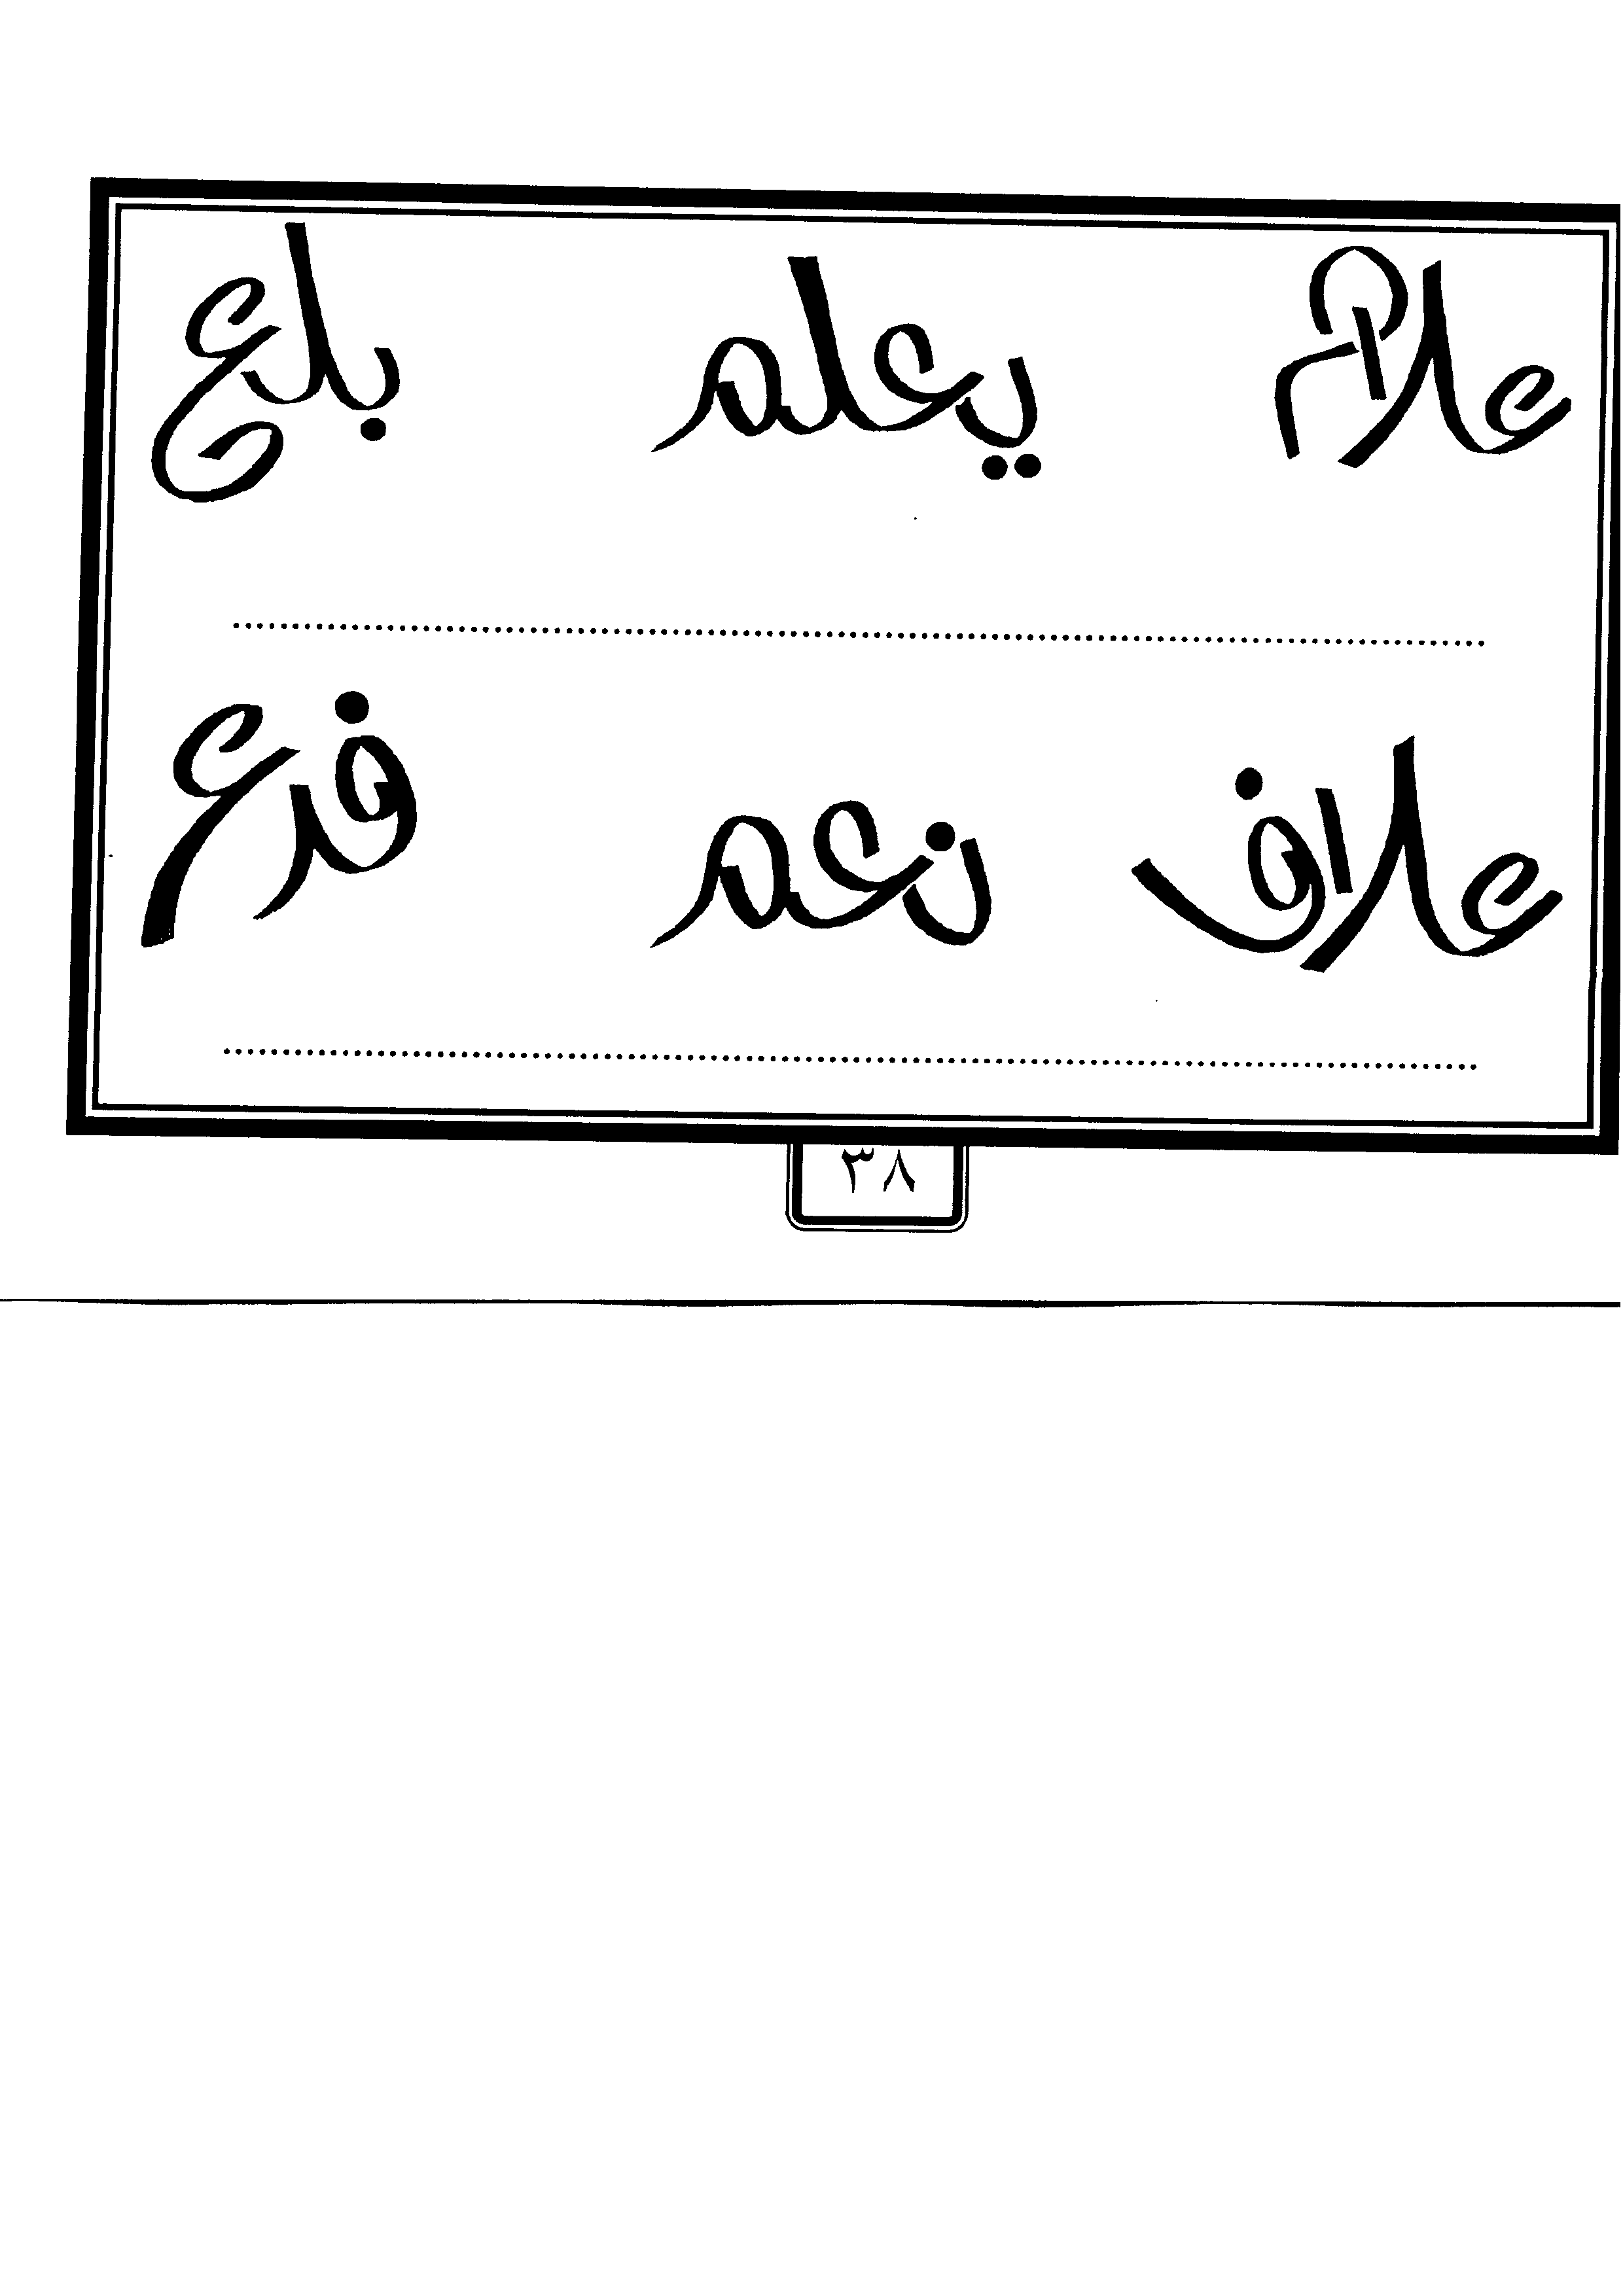 علام يعلم بلع
علاف نعم فرع
٣٨